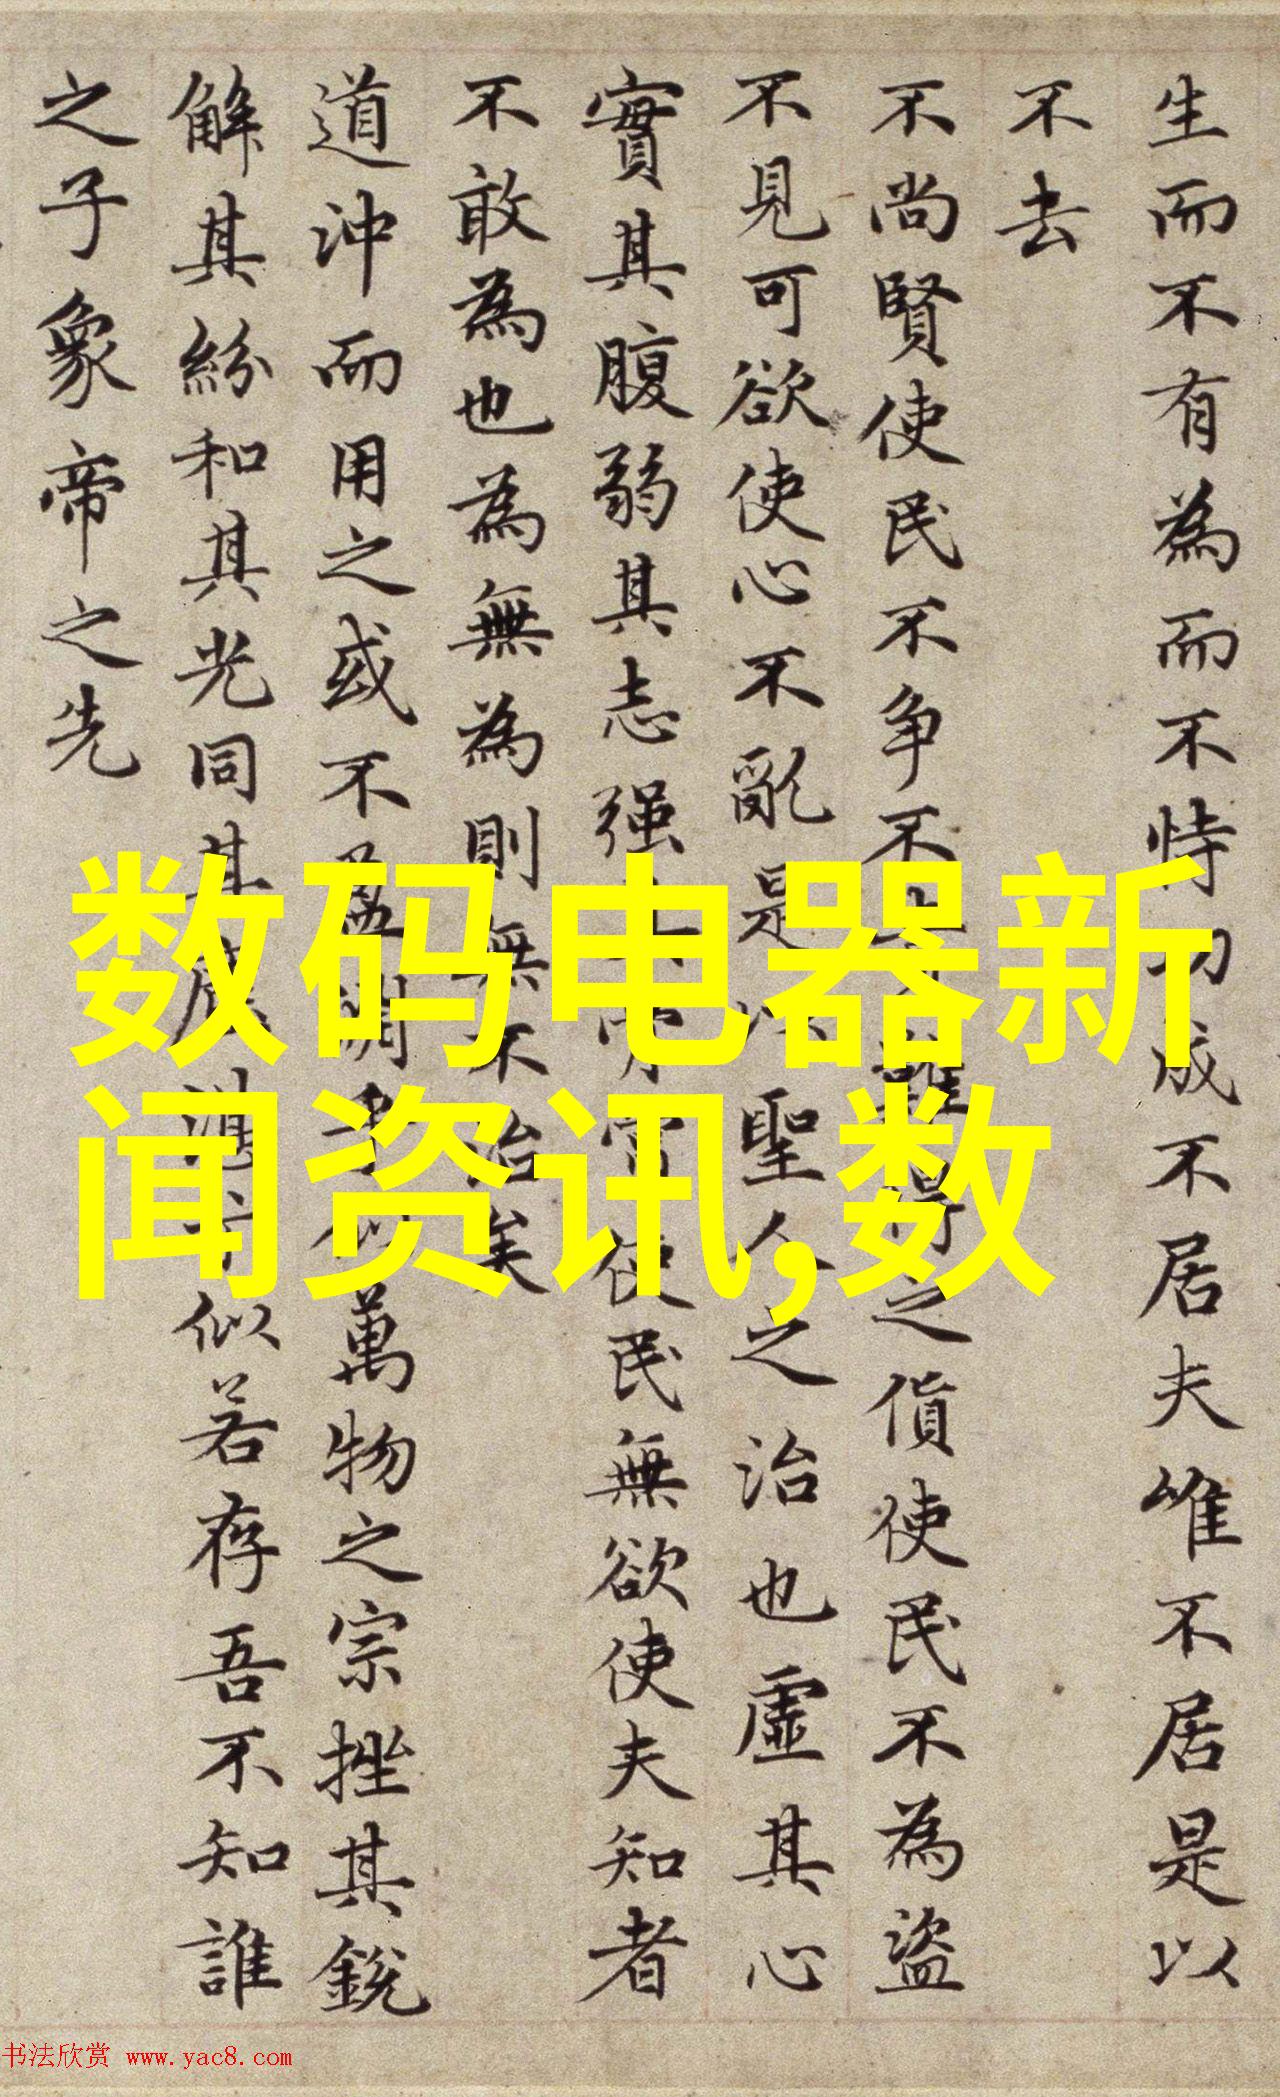 生而不有為而不恃功成不居夫唯不居是以
不去
不尚賢使民不争不難得之貨使民不為盜
不見可欲使心不亂是以聖人之治也虛其心
實其腹弱其志强其骨常使民無欲使夫知者
不敢為也為無為則無不治矣
道沖而用之或不盈淵乎似萬物之宗挫其銳
解其紛和其光同其塵湛似若存吾不知誰
之子象帝之先
数码电器新
闻资讯,数
书法欣赏 www.yac8.com